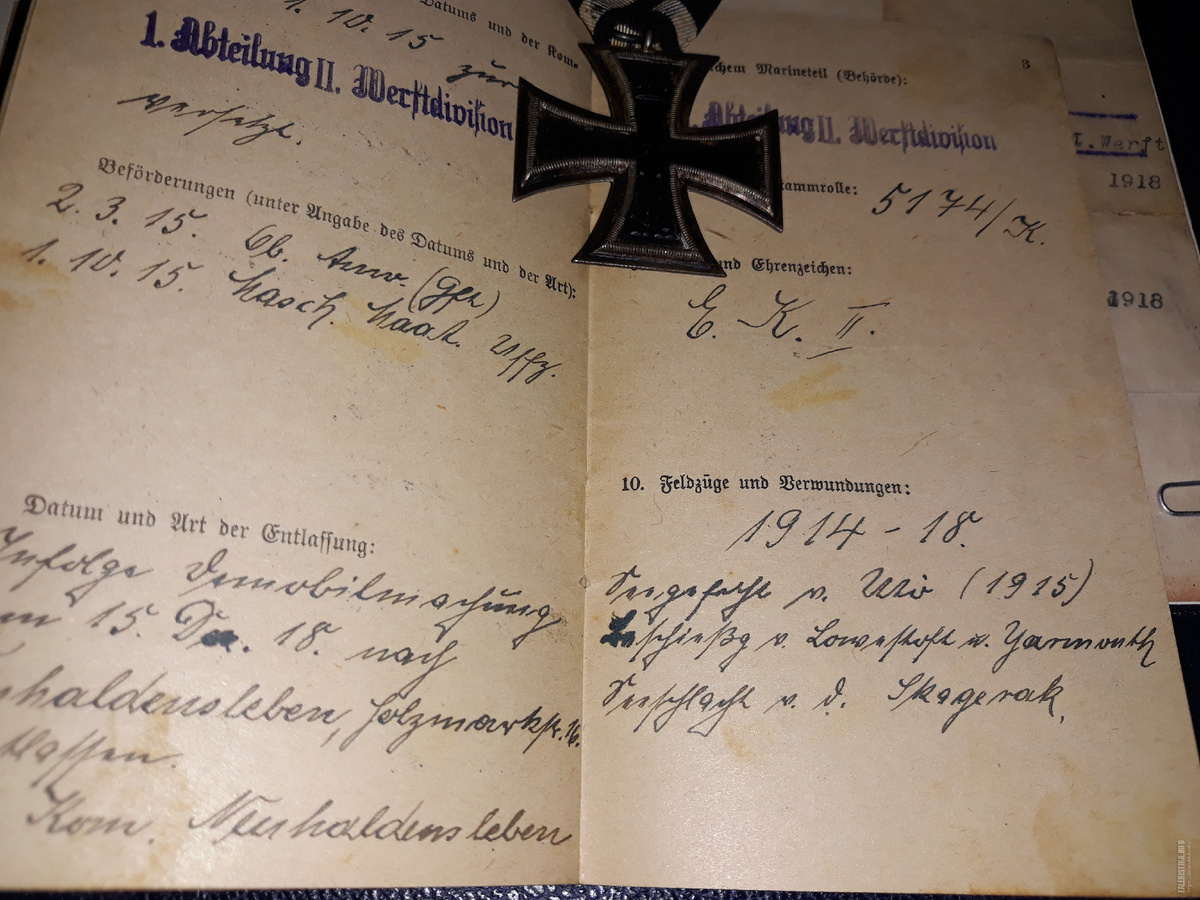 Datums und der Kom-
1. 10. 15 zur
1. Abteilung II. Werftdivision
versetzt.
Beförderungen (unter Angabe des Datums und der Art):
2. 3. 15. Ob. Anw. (Gfr)
1. 10. 15. Masch. Maat. Uffz.
Datum und Art der Entlassung:
Infolge Demobilmachung
15. Dez. 18. nach
haldensleben, Holzmarkstr. 16.
tlassen.
Kom. Neuhaldensleben
3
chem Marineteil (Behörde):
Abteilung II. Werftdivision
tammrolle: 5174/K.
und Ehrenzeichen:
E. K. II.
10. Feldzüge und Verwundungen:
1914 - 18.
Seegefecht v. Utö (1915)
Beschießg v. Lowestoft u. Yarmouth
Seeschlacht v. d. Skagerak,
I. Werft
1918
1918
FALERISTIKA.INFO